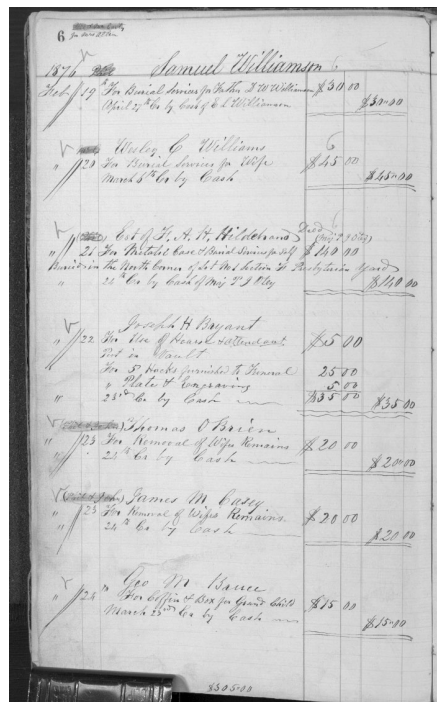 6
1876 Samuel Williamson
Feb 19th For Burial Services for Father D W Williamson $30 00
April 27th Cr by Cash of E L Williamson $30.00
Wesley C Williams
" 20 For Burial Services for Wife $45 00
March 5th Cr by Cash $45.00
Est of F. A. H. Hildebrand Decd
" 21 For Metalic Case & Burial Services for Self $140 00
Buried in the North Corner of Lot No 1 Section H Presbyterian Yard
" 24th Cr by Cash of Maj T J Oley $140 00
Joseph H Bryant
" 22 For Use of Hearse & attendant. $5 00
Put in Vault
For 5 Hacks furnished to Funeral 25 00
" Plate & Engraving 5 00
" 23rd Cr by Cash $35 00 $35 00
Thomas O'Brien
" 23 For Removal of Wifes Remains $20 00
" 24th Cr by Cash $20.00
James M Casey
" 23 For Removal of Wifes Remains. $20 00
" 24th Cr by Cash $20 00
Geo M. Bruce
" 24 " For Coffin & Box for Grand Child $15 00
March 25th Cr by Cash $15.00
$305.00